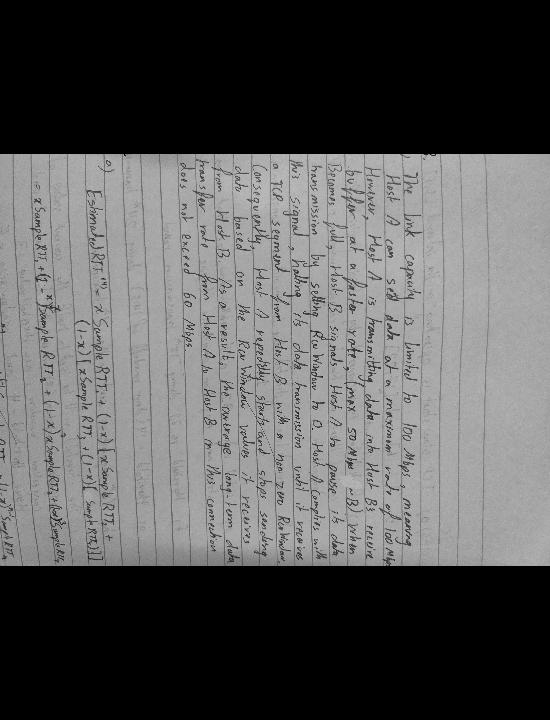 8.
) The link capacity is limited to 100 Mbps, meaning
Host A can send data at a maximum rate of 100 Mbps
However Host A is transmitting data into Host B's receive
buffer at a faster rate, (max 50 Mbps B) When
Becomes full, Host B signals Host A to pause its data
transmission by setting Rcv Window to 0. Host A complies with
this signal, halting its data transmission until it receives
a TCP segment from Host B with a non zero Rcv Window.
Consequently, Host A repeatedly starts and stops sending
data based on the Rcv Window values it receives
from Host B. As a result, the average long-term data
transfer rate from Host A to Host B on this connection
does not exceed 60 Mbps.
a) Estimated RTT⁽⁴⁾ = x Sample RTT₁ + (1-x) [x Sample RTT₂ +
(1-x) [x Sample RTT₃ + (1-x) [ Sample RTT₄)]]
= x Sample RTT₁ + (1-x) x Sample RTT₂ + (1-x)² x Sample RTT₃ + (1-x)³ Sample RTT₄